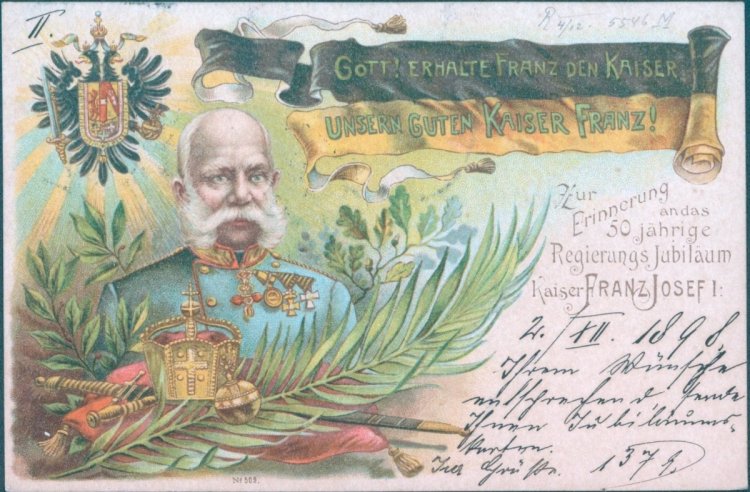 II.
R 4/12. 5546 M
GOTT! ERHALTE FRANZ DEN KAISER,
UNSERN GUTEN KAISER FRANZ!
Zur
Erinnerung
an das
50 jährige
Regierungs Jubiläum
Kaiser FRANZ JOSEF I:
2./XII. 1898
Ihrem Wünsche
entsprechend sende
Ihnen Jubiläums-
karten.
Grüße. 1379.
No 509.